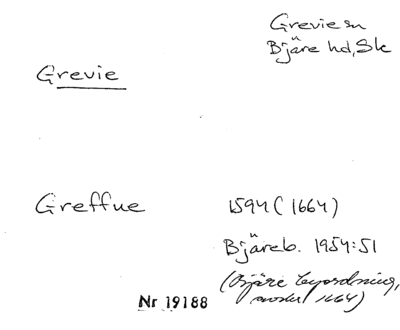 Grevie sn
Bjäre hd, Sk
Grevie
Greffue 1594 (1664)
Bjäreb. 1954:51
(Bjäre
1664)
Nr 19188